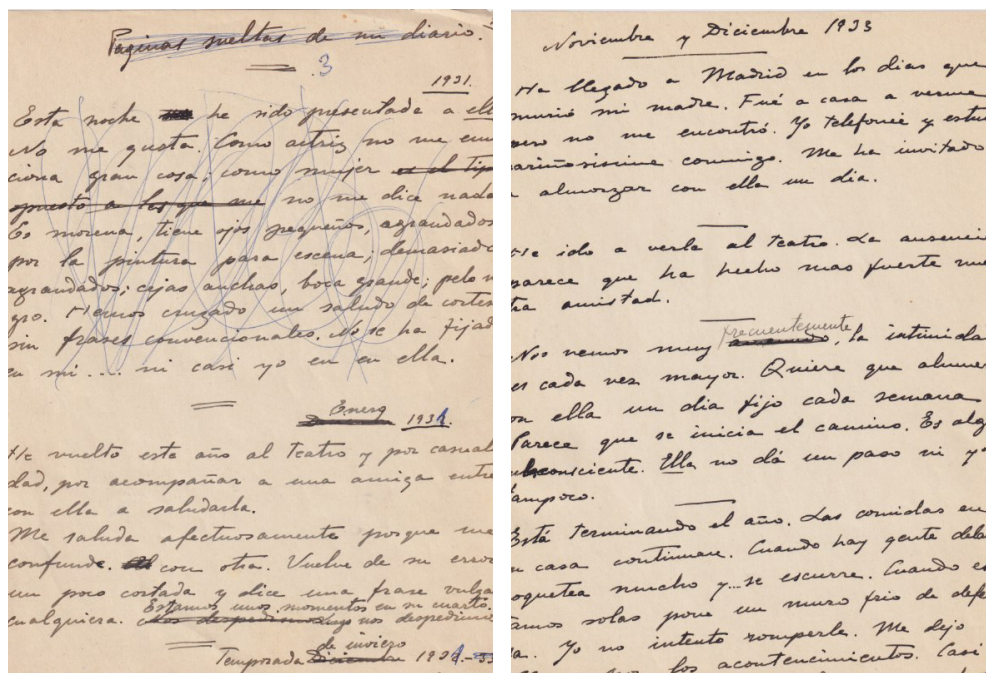 Paginas sueltas de un diario.
3
1931.
Esta noche he sido presentada a ell
No me gusta. Como actriz no me emo
ciona gran cosa, como mujer es el tip
opuesto a los que me no me dice nada
Es morena, tiene ojos pequeños, agrandados
por la pintura para escena; demasiado
agrandados; cejas anchas, boca grande; pelo n
gro. Hemos cruzado un saludo de cortes
sin frases convencionales. No se ha fijad
en mi.... ni casi yo en en ella.
Enero
193
He vuelto este año al Teatro y por casual
dad, por acompañar a una amiga entre
con ella a saludarla.
Me saluda afectuosamente porque me
confunde. con otra. Vuelve de su error
un poco cortada y dice una frase vulga
cualquiera.
Estamos unos momentos en su cuarto.
nos despedimos nos despedimo
de invierno
Temporada Diciembre 193
Noviembre y Diciembre 1933
Ha llegado a Madrid en los dias que
murió mi madre. Fué a casa a verme
pero no me encontró. Yo telefoneé y estu
cariñosisima conmigo. Me ha invitado
a almorzar con ella un dia.
He ido a verla al teatro. La ausenci
parece que ha hecho mas fuerte nue
tra amistad.
frecuentemente
Nos vemos muy , la intimida
es cada vez mayor. Quiere que almuer
con ella un dia fijo cada semana
Parece que se inicia el camino. Es alg
inconsciente. Ella no dá un paso ni yo
tampoco.
Está terminando el año. Las comidas en
su casa continuan. Cuando hay gente dela
coquetea mucho y... se escurre. Cuando es
tamos solas pone un muro frio de defe
sa. Yo no intento romperle. Me dejo
los acontencimientos. Casi